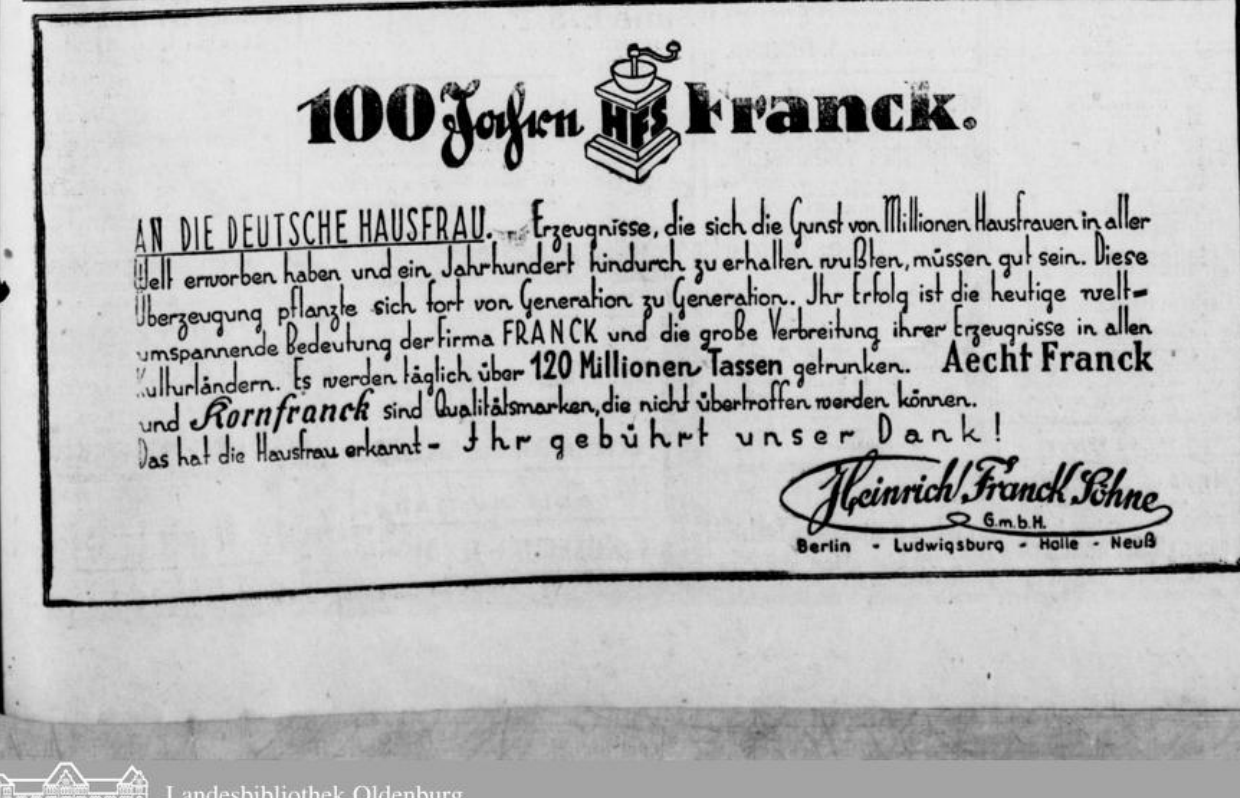 100 Jahren HFS Franck.
AN DIE DEUTSCHE HAUSFRAU. Erzeugnisse, die sich die Gunst von Millionen Hausfrauen in aller
Welt erworben haben und ein Jahrhundert hindurch zu erhalten wußten, müssen gut sein. Diese
Überzeugung pflanzte sich fort von Generation zu Generation. Ihr Erfolg ist die heutige welt-
umspannende Bedeutung der Firma FRANCK und die große Verbreitung ihrer Erzeugnisse in allen
Kulturländern. Es werden täglich über 120 Millionen Tassen getrunken. Aecht Franck
und Kornfranck sind Qualitätsmarken, die nicht übertroffen werden können.
Das hat die Hausfrau erkannt - Ihr gebührt unser Dank!
Heinrich Franck Söhne
G.m.b.H.
Berlin - Ludwigsburg - Halle - Neuß
Landesbibliothek Oldenburg